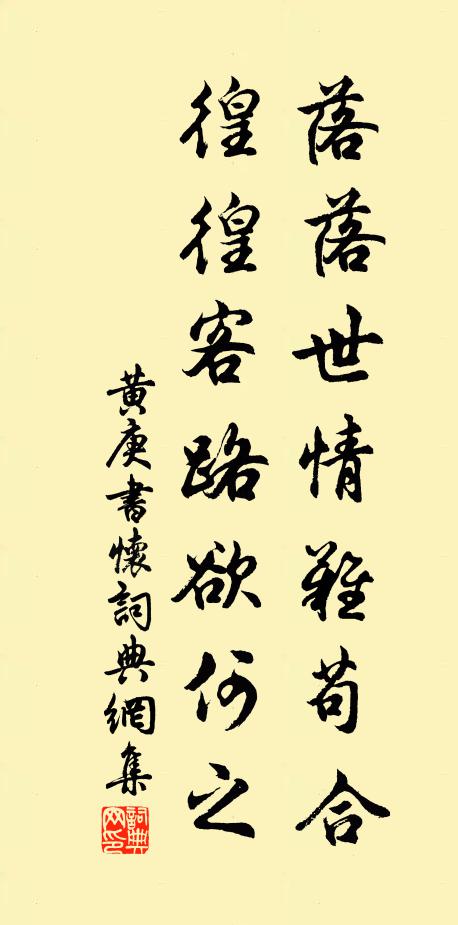 落落世情難苟合
徨徨客路欲何之
黄庚書懷詞典網集
詞典网印